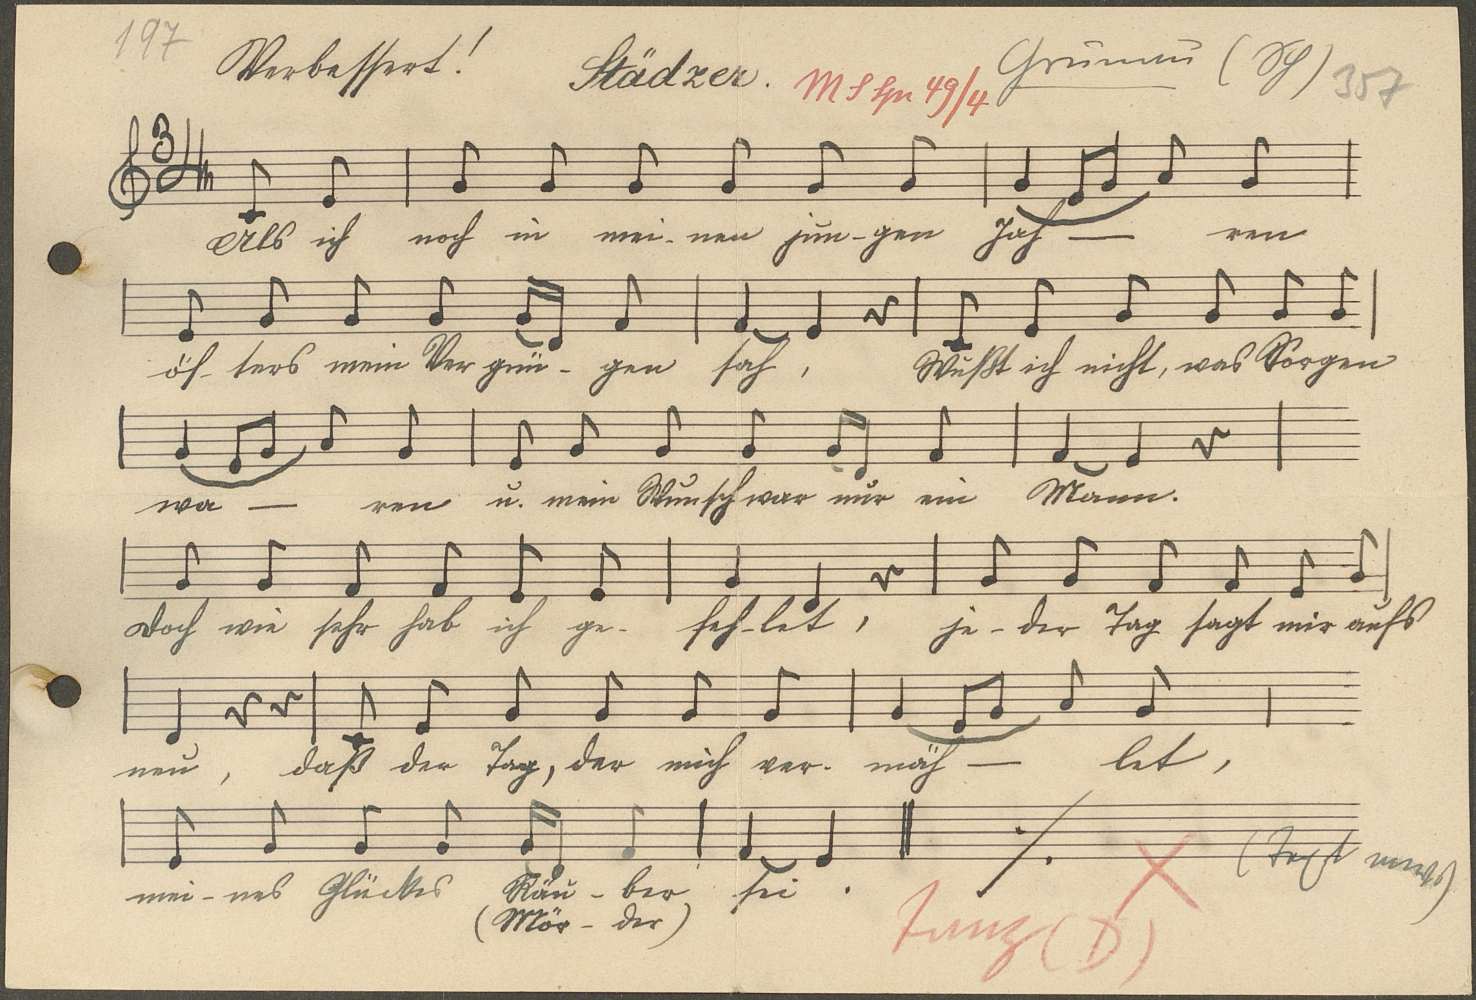 197 Verbessert! Städzer. Grünau (Sch) 357
49/4
Als ich noch in mei-nen jun-gen Jah — ren
öf-ters mein Ver gnü-gen sah, Wußt ich nicht, was Sorgen
wa — ren u. mein Wunsch war nur ein Mann.
Doch wie sehr hab ich ge- feh-let, je-der Tag sagt mir aufs
neu, daß der Tag, der mich ver- mäh — let,
mei-nes Glückes Räu-ber sei.
(Mör-der)
Tanz (D)